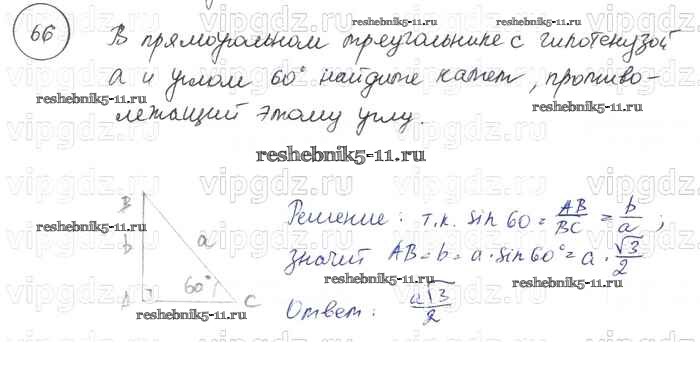 66
В прямоугольном треугольнике с гипотенузой
a и углом 60° найдите катет, противо-
лежащий этому углу.
reshebnik5-11.ru
reshebnik5-11.ru
reshebnik5-11.ru
reshebnik5-11.ru
B
b
a
A
60°
C
Решение: т.к. sin 60 = AB/BC = b/a ;
значит AB = b = a · sin 60° = a · √3/2
Ответ: a√3/2
reshebnik5-11.ru
reshebnik5-11.ru
reshebnik5-11.ru
reshebnik5-11.ru
vipgdz.ru